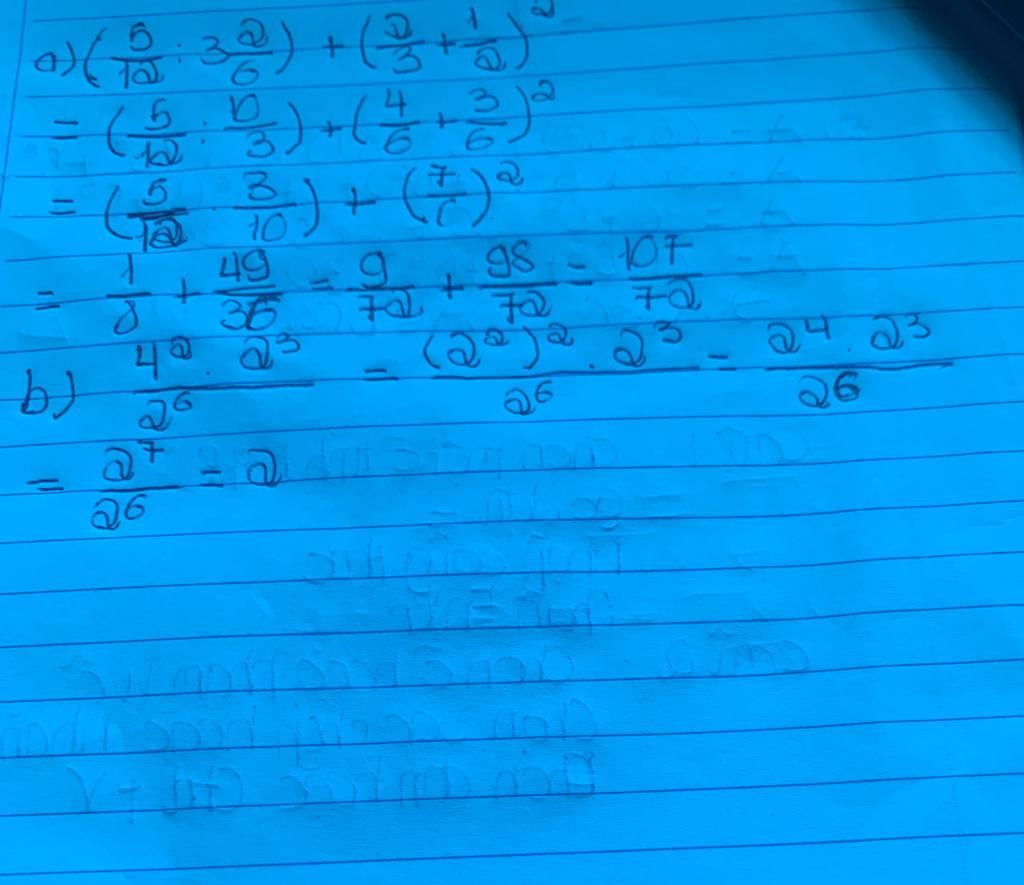 a) (5/12 : 3 2/6) + (2/3 + 1/2)²
= (5/12 : 10/3) + (4/6 + 3/6)²
= (5/12 · 3/10) + (7/6)²
= 1/8 + 49/36 = 9/72 + 98/72 = 107/72
b) 4² · 2³ / 2⁶ = (2²)² · 2³ / 2⁶ = 2⁴ · 2³ / 2⁶
= 2⁷ / 2⁶ = 2